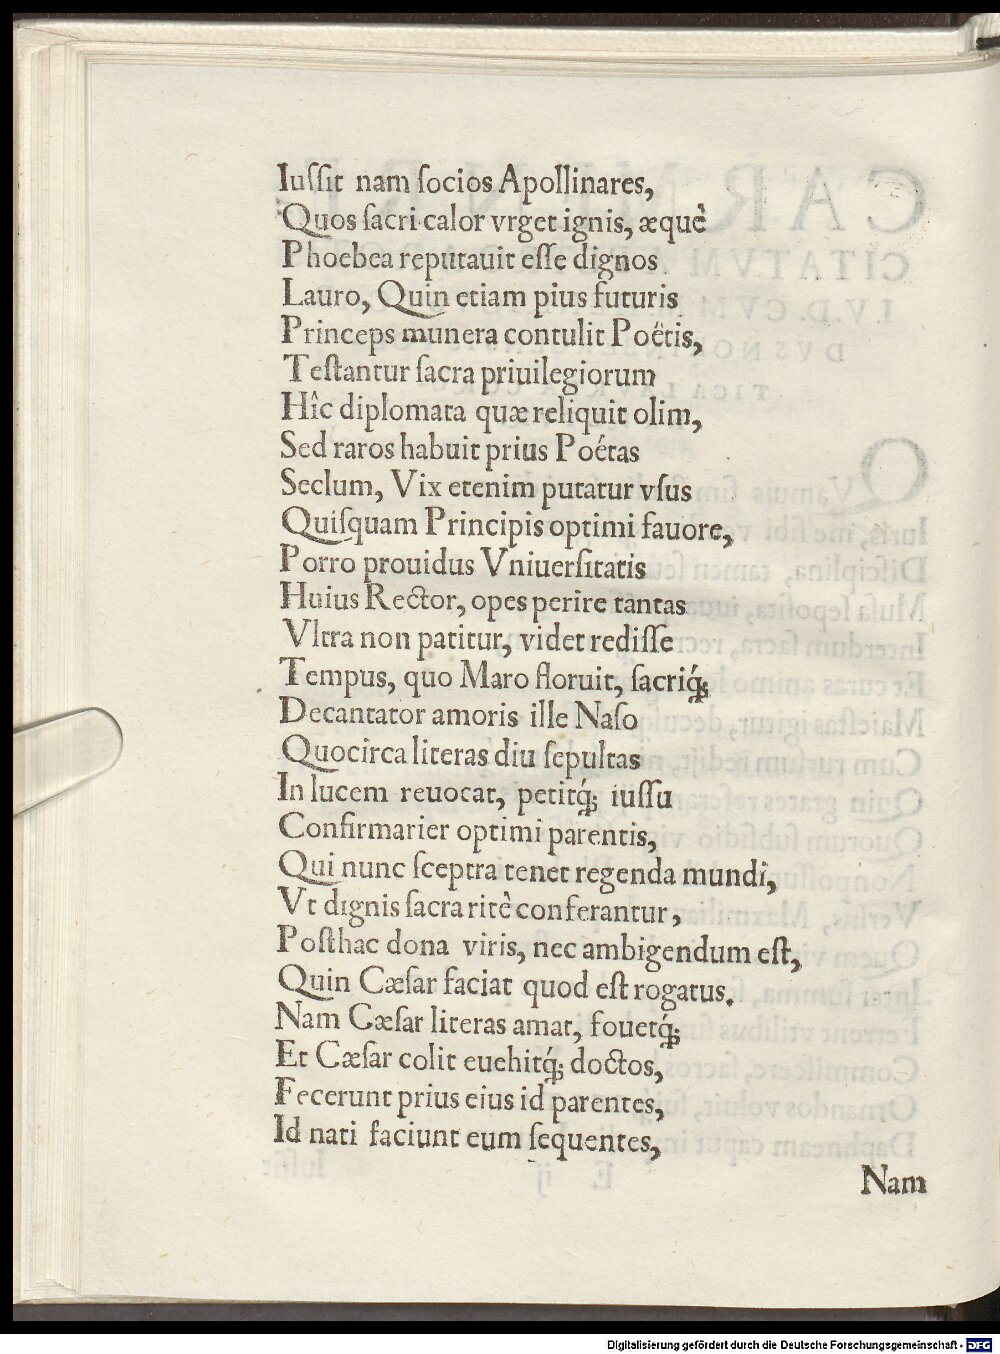 Iuſſit nam ſocios Apollinares,
Quos ſacri calor vrget ignis, æquè
Phoebea reputauit eſſe dignos
Lauro, Quin etiam pius futuris
Princeps munera contulit Poëtis,
Teſtantur ſacra priuilegiorum
Hîc diplomata quæ reliquit olim,
Sed raros habuit prius Poétas
Seclum, Vix etenim putatur vſus
Quiſquam Principis optimi fauore,
Porro prouidus Vniuerſitatis
Huius Rector, opes perire tantas
Vltra non patitur, videt rediſſe
Tempus, quo Maro floruit, ſacriq́;
Decantator amoris ille Naſo
Quocirca literas diu ſepultas
In lucem reuocat, petitq́; iuſſu
Confirmarier optimi parentis,
Qui nunc ſceptra tenet regenda mundi,
Vt dignis ſacra ritè conferantur,
Poſthac dona viris, nec ambigendum eſt,
Quin Cæſar faciat quod eſt rogatus.
Nam Cæſar literas amat, fouetq́;
Et Cæſar colit euehitq́; doctos,
Fecerunt prius eius id parentes,
Id nati faciunt eum ſequentes,
Nam
Digitalisierung gefördert durch die Deutsche Forschungsgemeinschaft - DFG